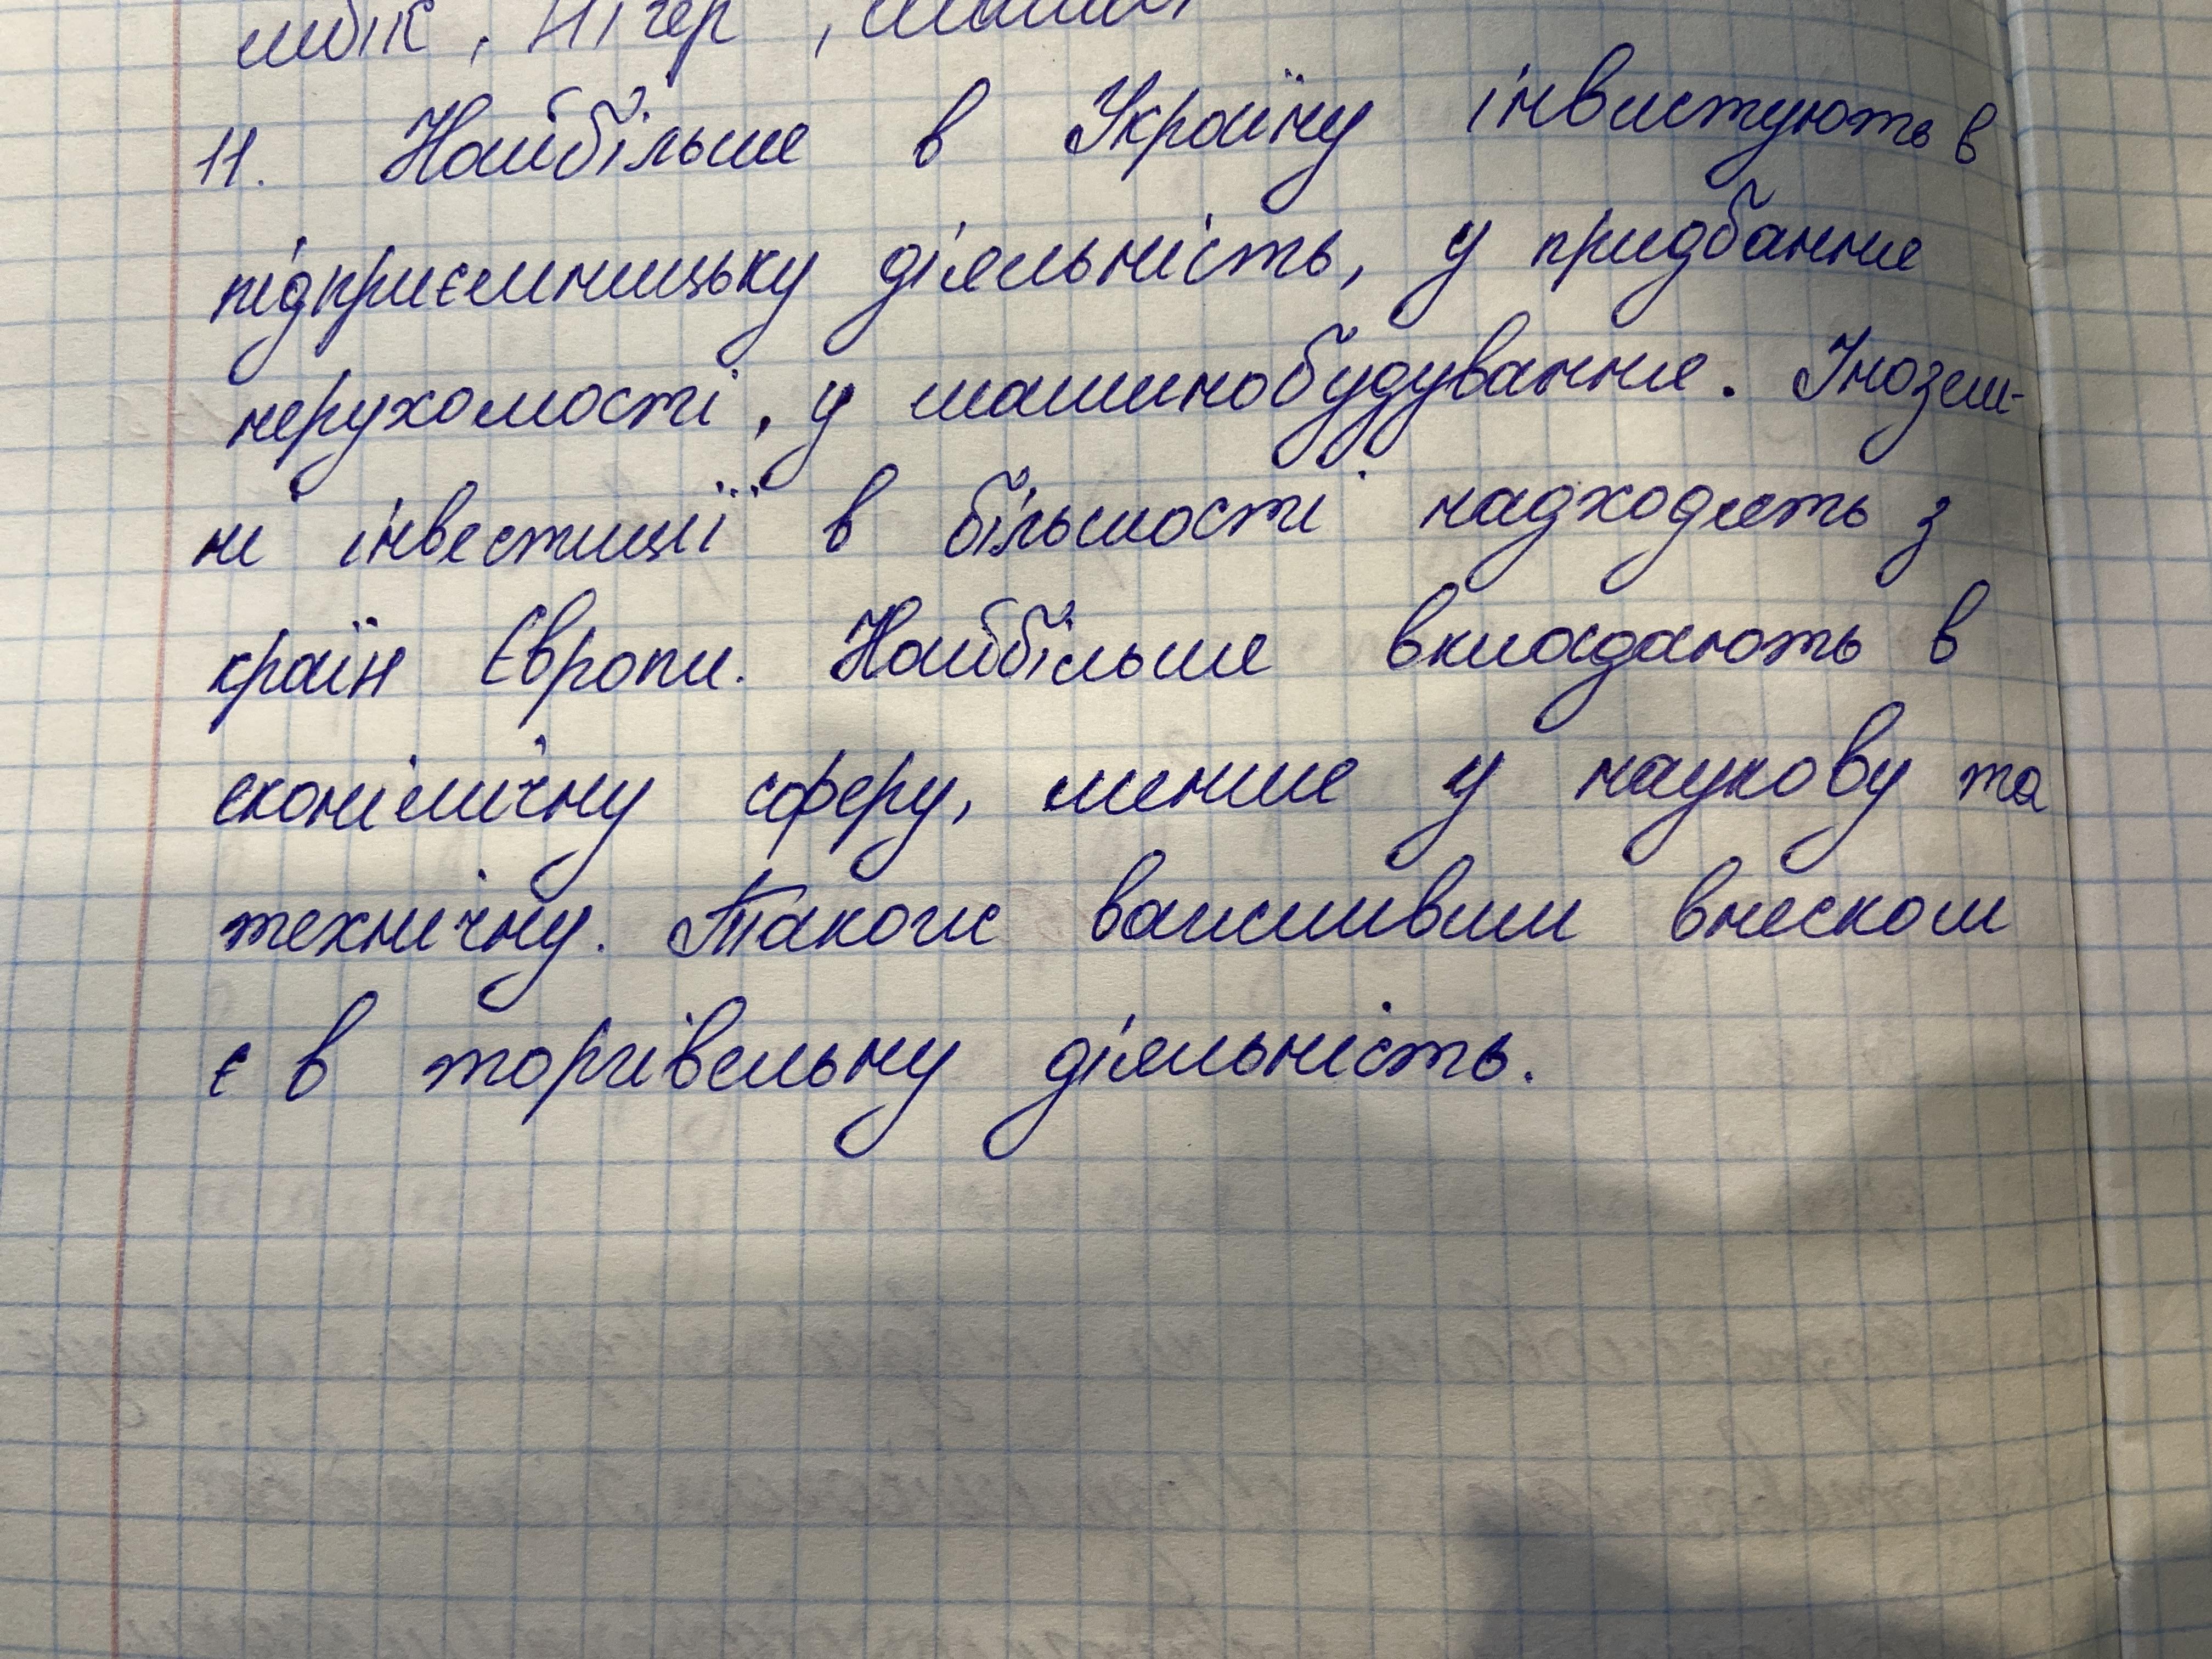 мбік, Нігер,
11. Найбільше в Україну інвистують в
підприємницьку діяльність, у придбання
нерухомості, у машинобудування. Інозем-
ні інвестиції в більшості надходять з
країн Європи. Найбільше вкладають в
еконімічну сферу, менше у наукову та
технічну. Також важливим внеском
є в торгівельну діяльність.